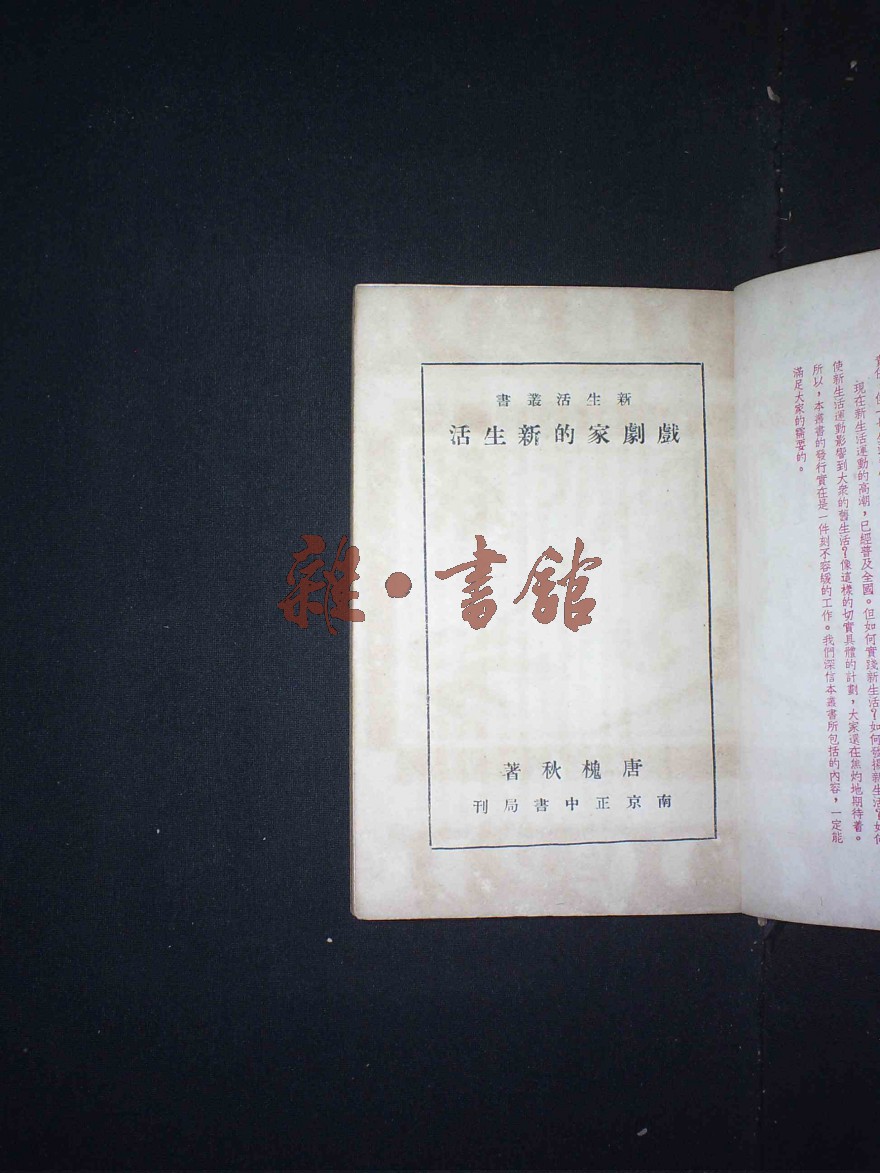 新生活叢書
戲劇家的新生活
唐槐秋著
南京正中書局刊
雜·書館
現在新生活運動的高潮,已經普及全國。但如何實踐新生活?如何發揚新生活?如何
使新生活運動影響到大衆的舊生活?像這樣的切實具體的計劃,大家還在焦灼地期待着。
所以,本叢書的發行實在是一件刻不容緩的工作。我們深信本叢書所包括的內容,一定能
滿足大家的需要的。